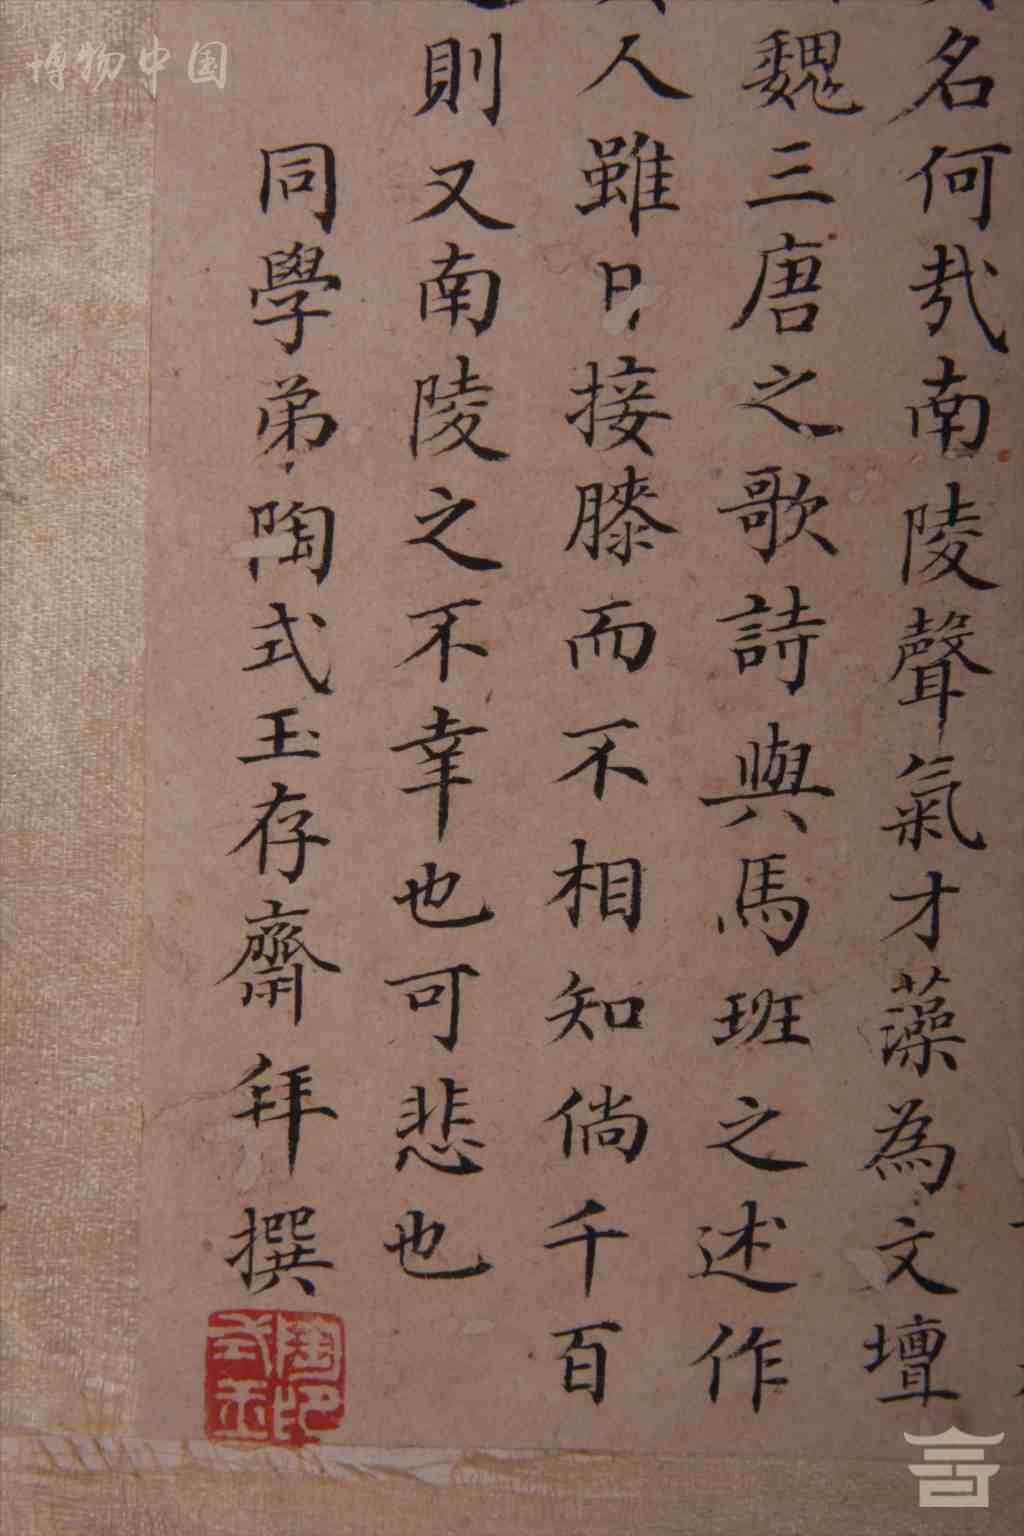 名何哉南陵聲氣才藻為文壇
魏三唐之歌詩與馬班之述作
人雖日接膝而不相知倘千百
則又南陵之不幸也可悲也
同學弟陶式玉存齋拜撰
陶式玉印
博物中国